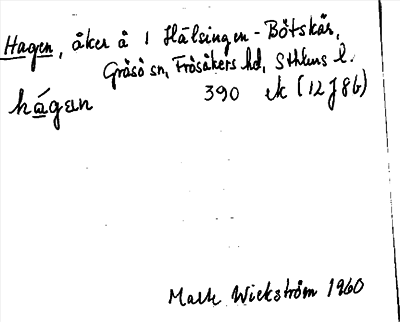 Hagen, åker å 1 Hälsingen - Böt­skär,
Gräsö sn, Frösåkers hd, Sthlms l.
hágan 390 ek (12J8b)
Malte Wickström 1960